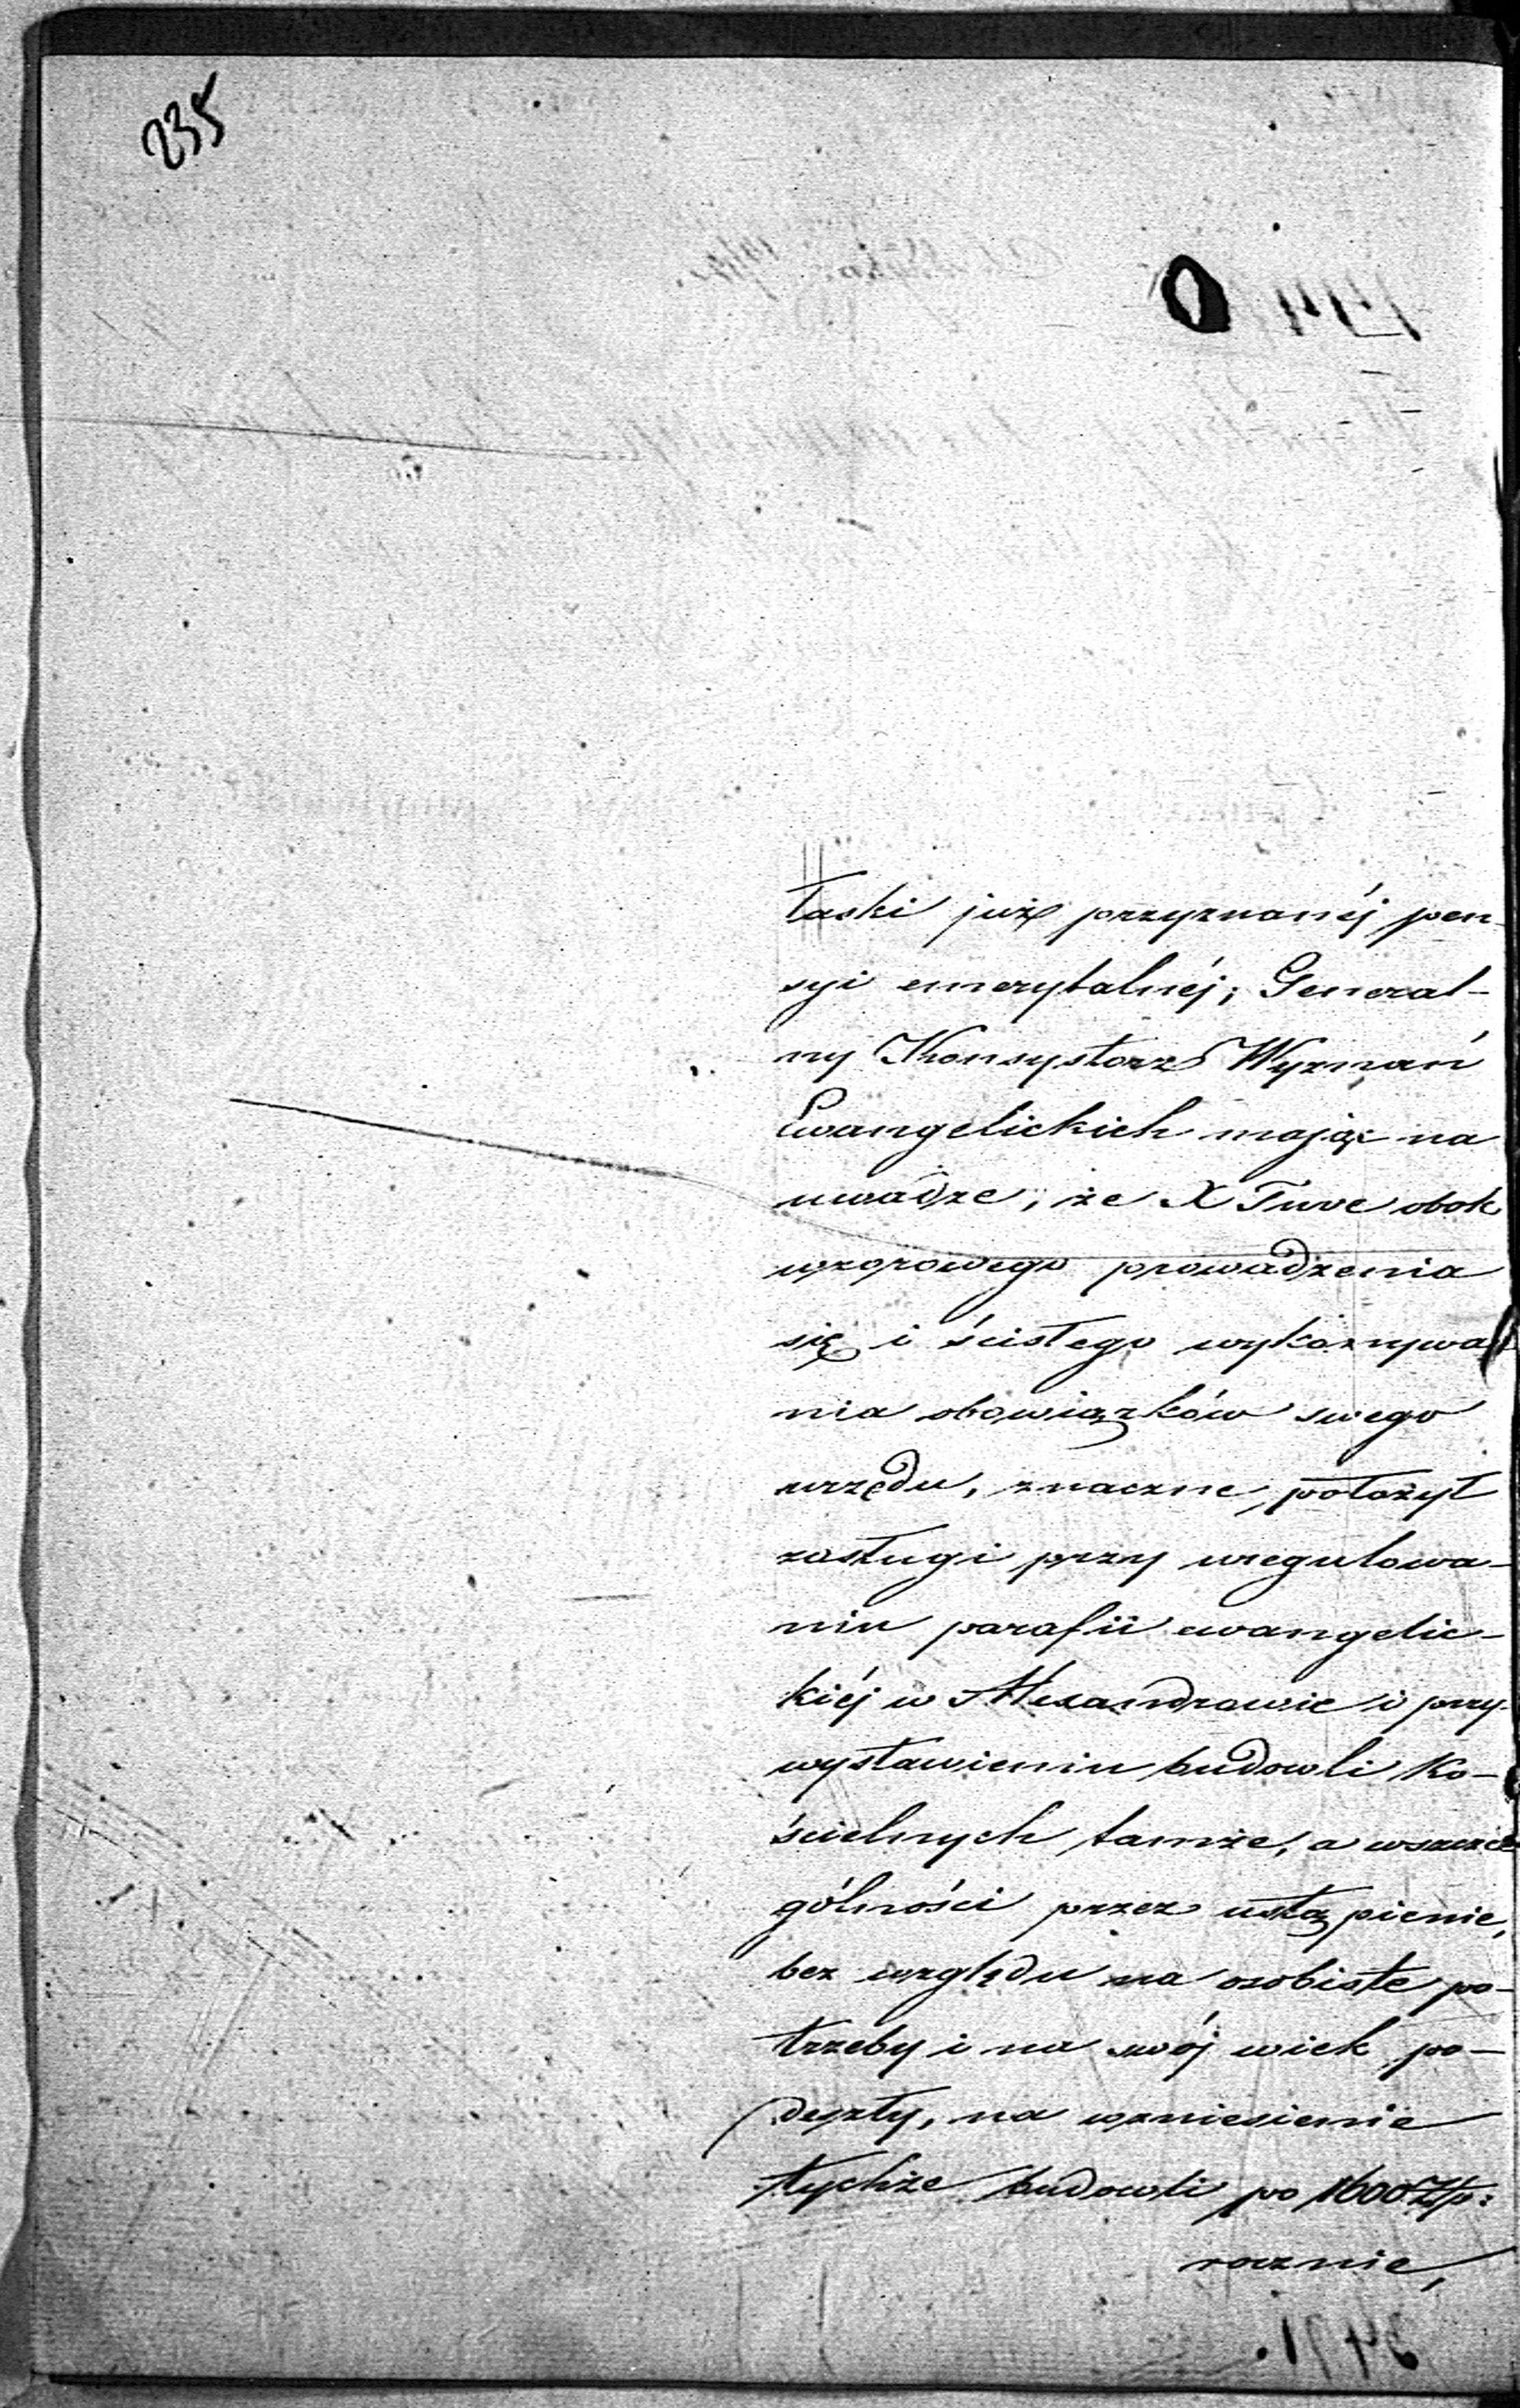 235
łaski już przyznanéj pen-
syi emerytalnéj; General-
ny Konsystorz Wyznań
Ewangelickich mając na
uwadze, że X Tuve obok
wzorowego prowadzenia
się i ścisłego wykonywa-
nia obowiązków swego
urzędu, znaczne położył
zasługi przy uregulowa-
niu parafii ewangelic-
kiéj w Alexandrowie i przy
wystawieniu budowli Ko-
ścielnych tamże, a wszcze
gólności przez ustąpienie,
bez względu na osobiste po-
trzeby i na swój wiek po-
deszły, na wzniesienie
tychże budowli po 1600 Złp:
rocznie,